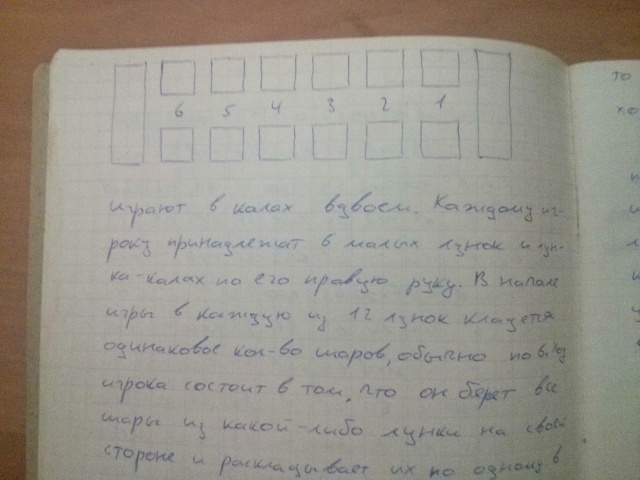 6 5 4 3 2 1
играют в калах вдвоем. Каждому иг-
року принадлежат 6 малых лунок и лун-
ка-калах по его правую руку. В начале
игры в каждую из 12 лунок кладется
одинаковое кол-во шаров, обычно по 6
игрока состоит в том, что он берет все
шары из какой-либо лунки на своей
стороне и раскладывает их по одному в
то
хо